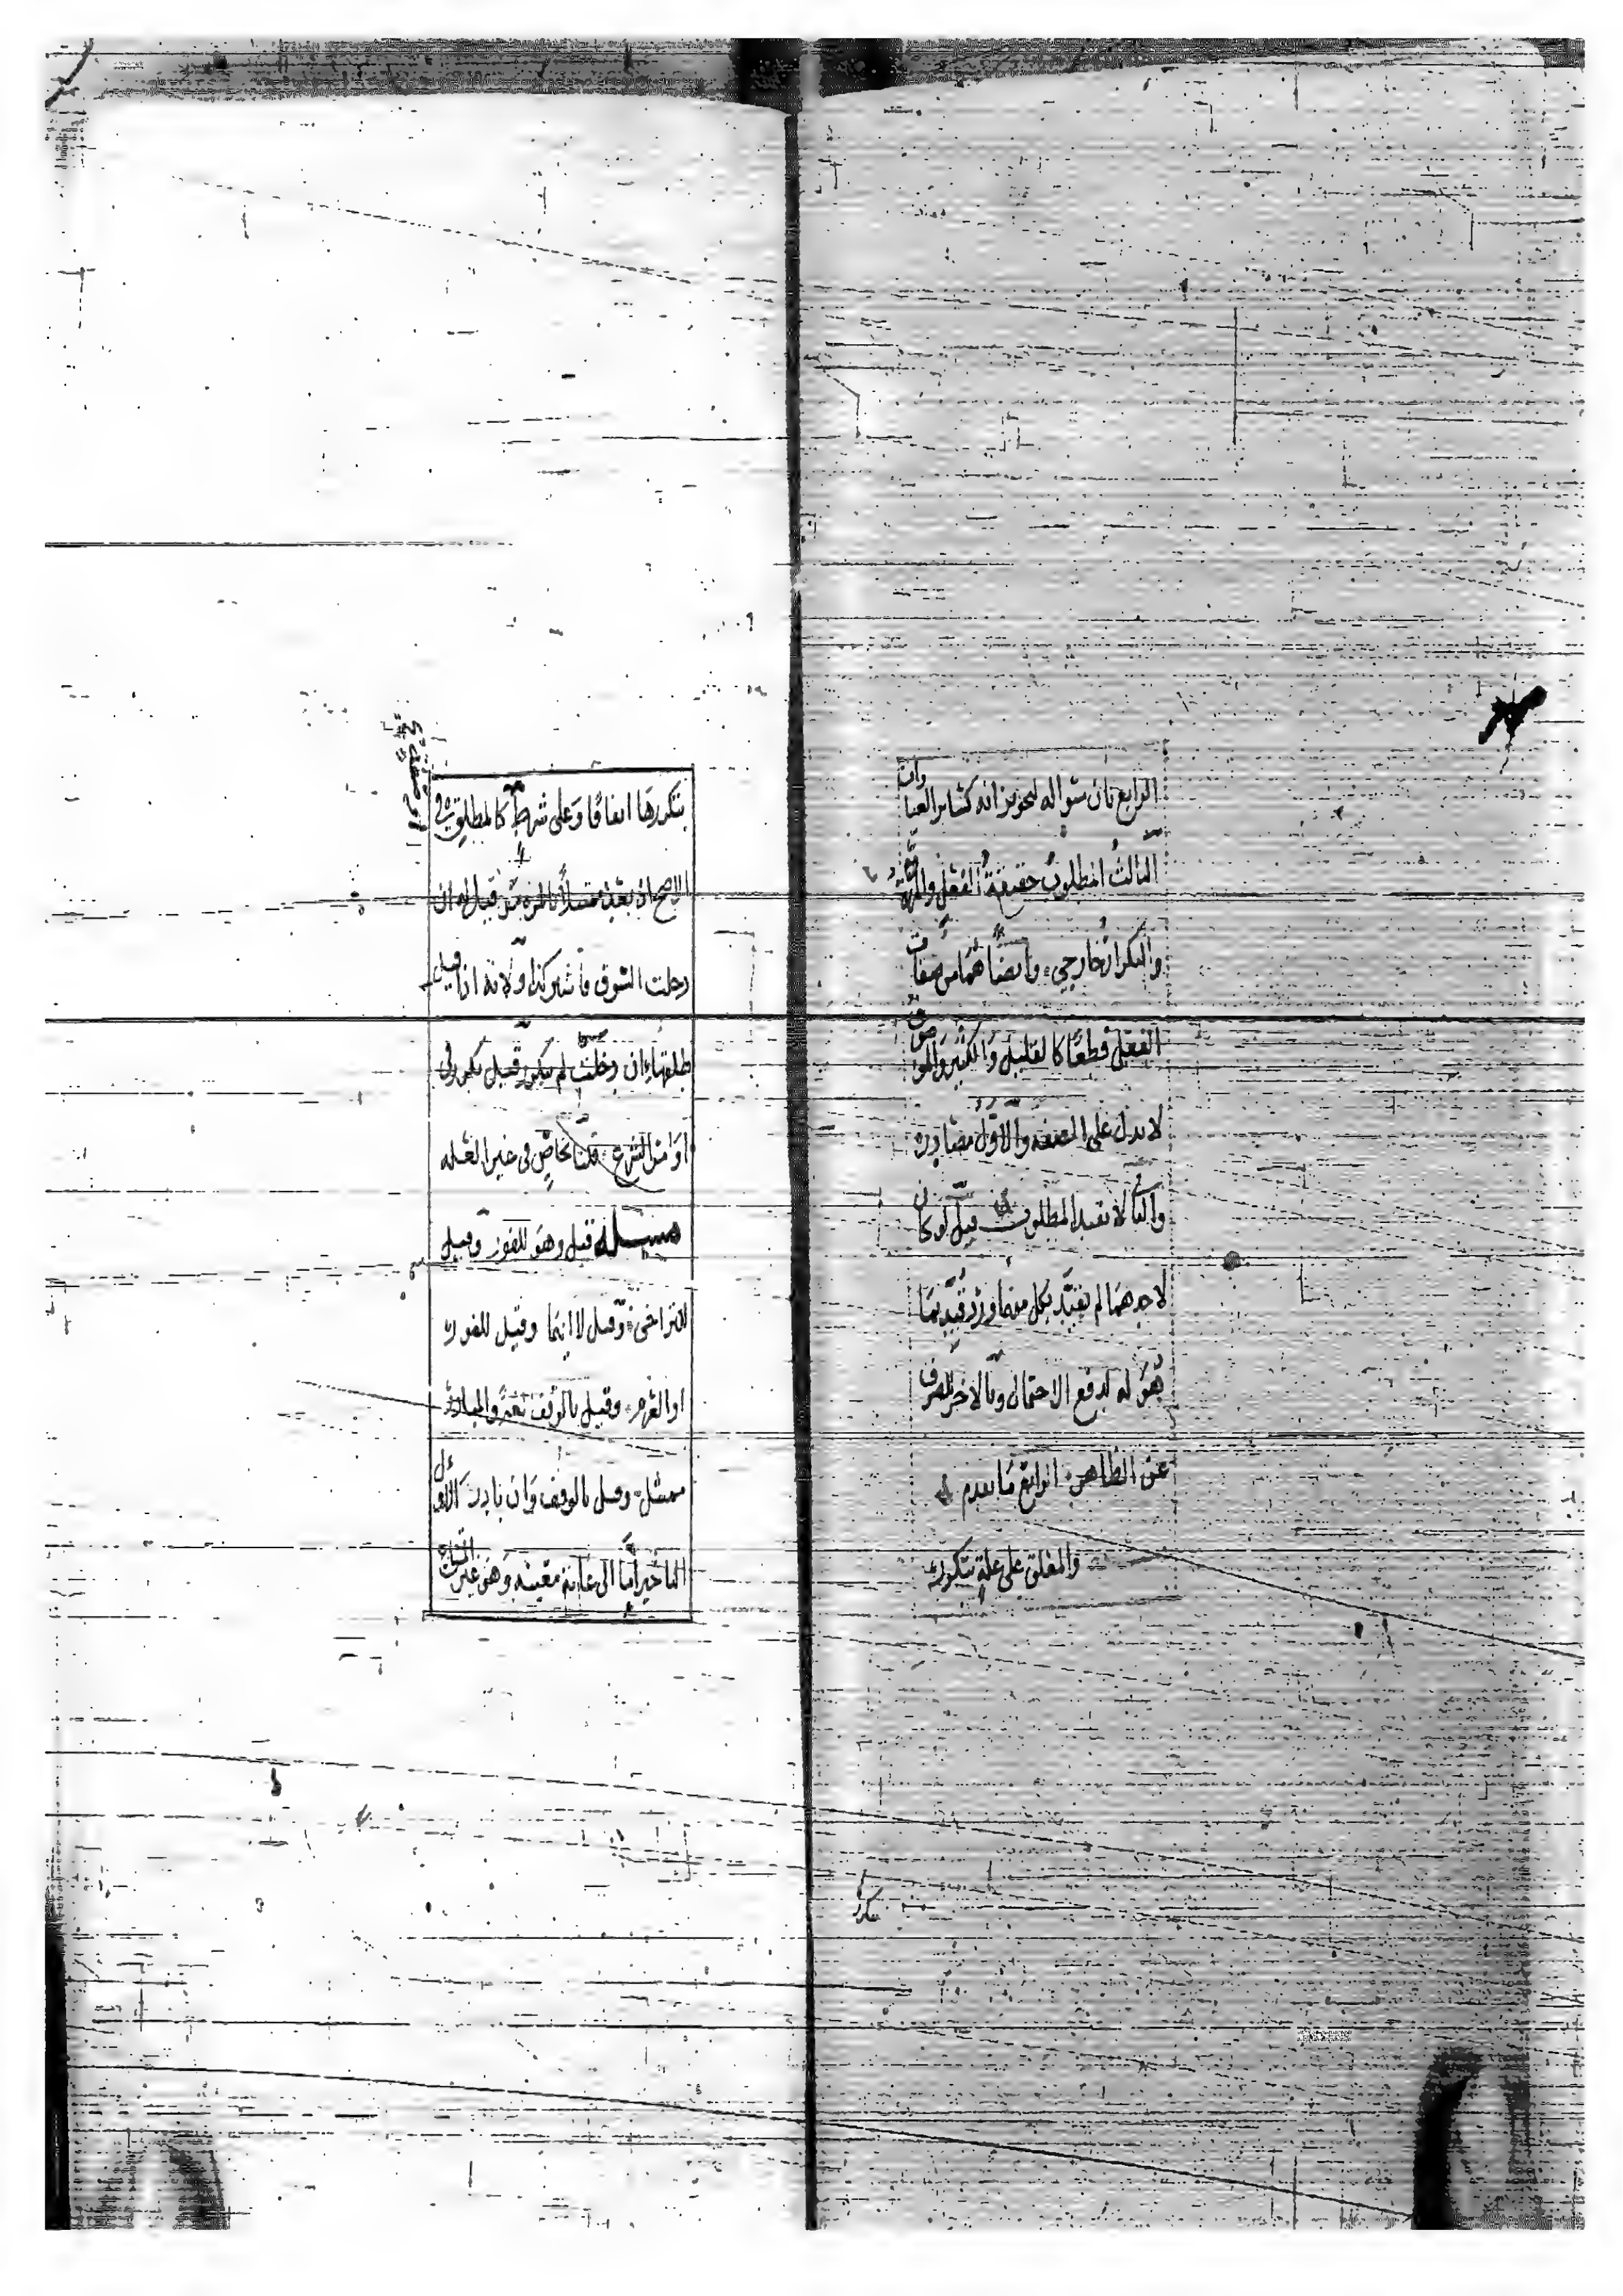 الرابع بان سؤاله لتجويزانه كسائر العبا
وات
الثالث المطلوب حقيقة الفعل والمرة
والتكرار خارجي وايضًا هما من صفات
الفعل قطعًا كالقليل والكثير والموصوف
لا يدل على الصفة والاول مصادرة
والثاني لا يفيد المطلوب قيل لو كان
لاحدهما لم يقيد بكل منهما ورد قيد بما
هو له لدفع الاحتمال وبالاخر للصرف
عن الظاهر الرابع ما تقدم
والمعلق على علة يتكرر
يتكرر
بتكررها اتفاقًا وعلى شرط كالمطلق في
الاصح
دخلت السوق فاشتر كذا ولانه اذا قيل
طلقها ان دخلت لم يتكرر قيل تكرر في
اوامر الشرع قلنا خاص في غير العلة
مسئلة قيل وهو للفور وقيل
للتراخي وقيل لا ايهما وقيل للفور
او العزم وقيل بالوقف لغة والمبادر
ممتثل وقيل بالوقف وان بادر الاول
التاخير اما الى غاية معينة وهو غير